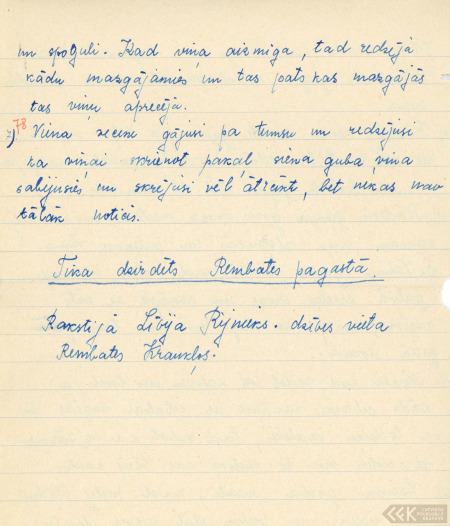 un spoguli. Kad viņa aizmiga, tad redzējā
kādu mazgājamies un tas pats kas mazgājās
tas viņu aprecēja.
78
5) Viena zecene gājusi pa tumsu un redzējusi
ka viņai skrienot pakaļ siena guba, viņa
sabijusiēs un skrējusi vēl ātrāki, bet nekas nav
tālāk noticis.
Tika dzirdēts Rembates pagastā.
Rakstījā Lībija Rijnieks. dzīves vieta
Rembates Kraukļos.
LATVIEŠU
FOLKLORAS
KRĀTUVE